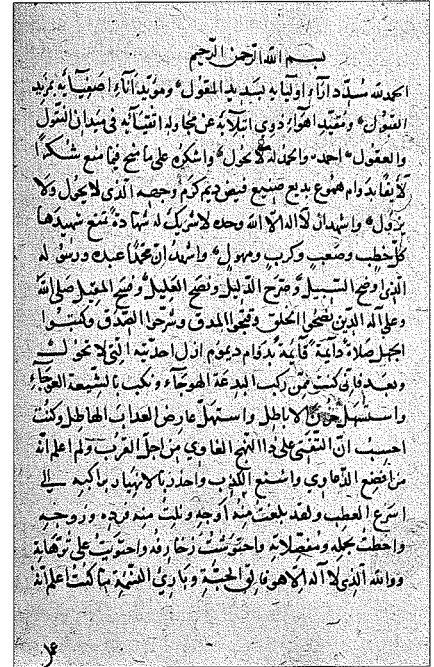 بسم الله الرحمن الرحيم
الحمد لله مسدد آراء اوليايه بتسديد المقول ومؤيد آناء اصفيايه بمزيد
القبول ومفند اهواء ذوي ابتلائه عن مجاولة اتقيائه في ميدان النقول
والعقول احمده والحمد له لا يحول واشكره على ما منح فيما منع شكرًا
بدوام هموع بديع صنيع فيض ديم كرم الذي لا يحول ولا
يزول واشهد ان لا اله الا الله وحده لا شريك له شهادة تمنع شهيدها
كل خطب وصعب وكرب ومهول واشهد ان محمدا عبده ورسوله
الذي اوضح السبيل وصرح الدليل ونصح العليل وفسح المقيل صلى الله
وعلى اله الذين نصحوا الخلق وشرحوا الصدق وكسوا
صلاة دائمة قائمة بدوام ديموم ازل احديته التي لا تحول
وبعد فاني كنت ممن ركب البدعة الهوجاء ونكب بالشيعة العوجاء
واستسهل الاباطل واستهل عارض العذاب الهاطل وكنت
احسب ان التفتي على ذا النهج الغاوي من اجل القرب ولم اعلم انه
من افضع الدعاوي واشنع الكذب واحذر بالانهيار بما كبه الى
اسرع العطب ولقد بلغت منه اوجه ونلت منه فرده وزوجه
واحطت بجمله ومعضلاته واحتوشت زخارفه واحتويت على ترهاته
ووالله الذي لا اله الا هو فالق الحبة وباري النسمة ما كنت اعلم انه
على